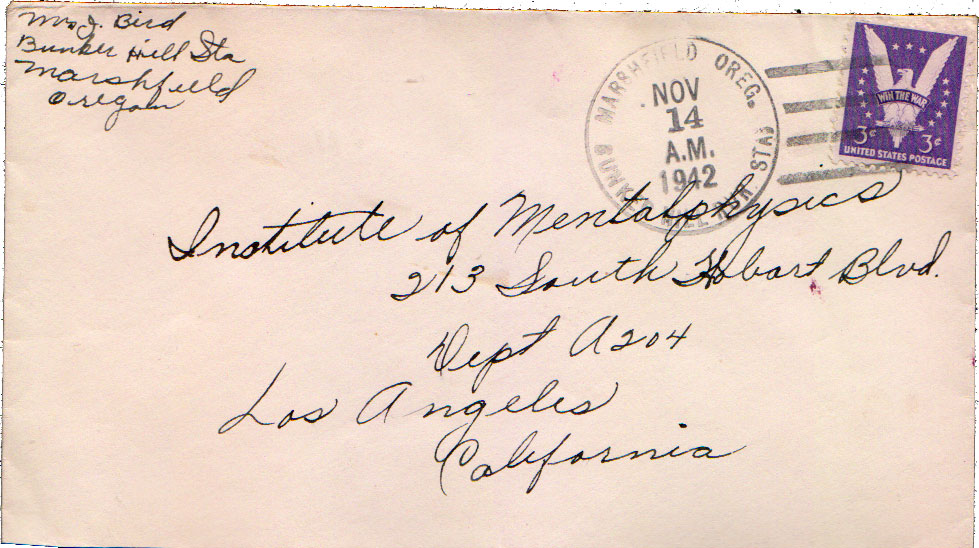 Mrs J. Bird
Bunker Hill Sta
Marshfield
Oregon
MARSHFIELD OREG.
BUNKER HILL STA.
NOV
14
A.M.
1942
WIN THE WAR
3¢ 3¢
UNITED STATES POSTAGE
Institute of Mentalphysics
213 South Hobart Blvd.
Dept A204
Los Angeles
California